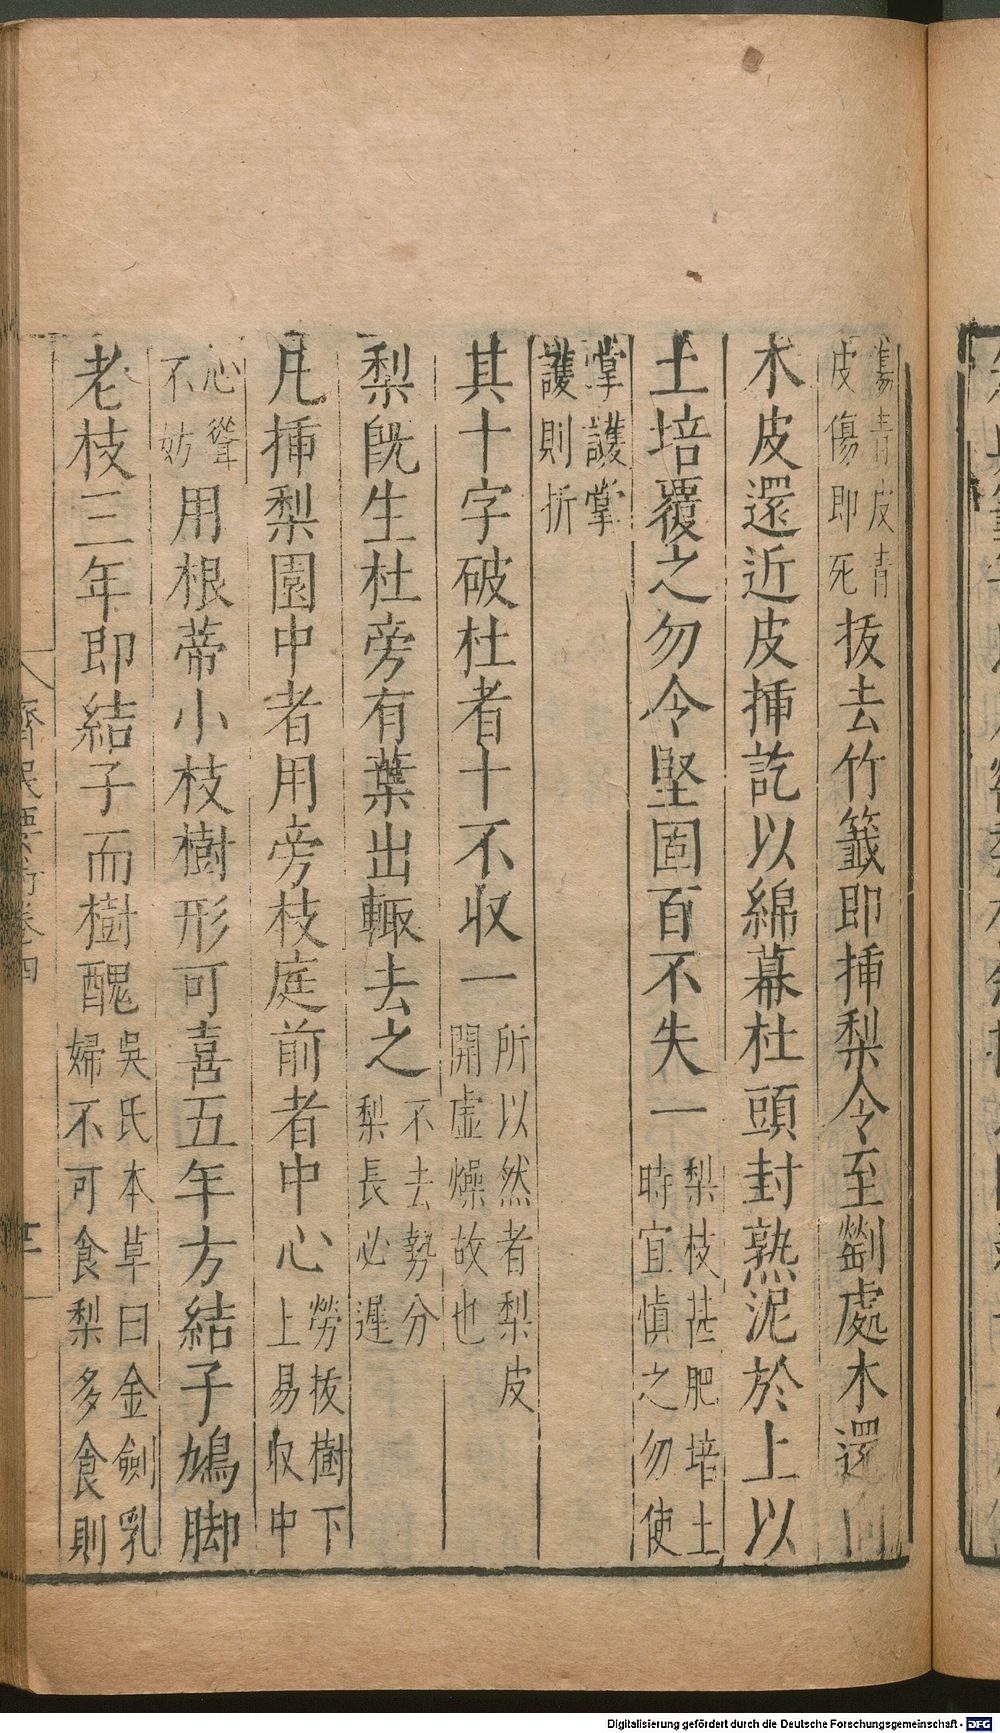 傷青皮青
皮傷即死
拔去竹籤即揷梨令至劙處木還向
木皮還近皮揷訖以綿幕杜頭封熟泥於上以
土培覆之勿令堅固百不失一
梨枝甚肥培土
時宜慎之勿使
掌護掌
護則折
其十字破杜者十不収一
所以然者梨皮
開虛燥故也
梨旣生杜旁有葉出輙去之
不去勢分
梨長必遲
凢揷梨園中者用旁枝庭前者中心
勞拔樹下
上易収中
心聳
不妨
用根蒂小枝樹形可喜五年方結子鳩脚
老枝三年即結子而樹醜
吳氏本草曰金劍乳
婦不可食梨多食則
齊民要術卷四
Digitalisierung gefördert durch die Deutsche Forschungsgemeinschaft - DFG